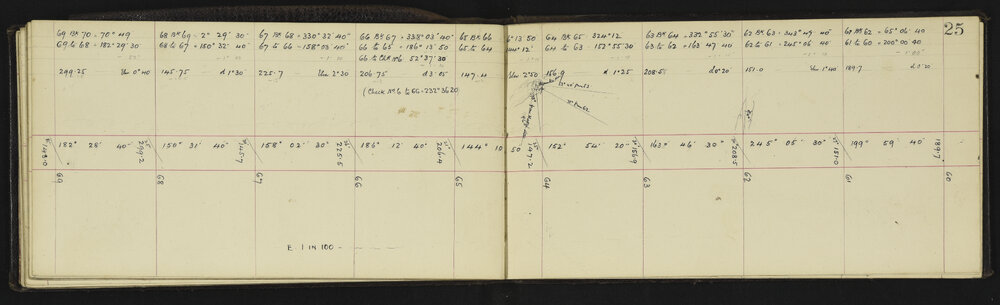 25
69 Bk 70 = 70° 49
69 to 68 - 182° 29' 30
299.25
68 Bk 69 - 2° 29' 30
68 to 67 - 150° 32' 40
145.75 d 1°30
67 Bk 68 - 330° 32' 40"
67 to 66 - 158° 03' 40
225.7 2°30
66 Bk 67 = 338° 03' 40"
66 to 65 - 186° 13' 50
66 to Chk No 6 52° 37' 30
206.75 d 3°05
(Check No. 6 to 66 - 232° 36 20)
65 Bk 66 6° 13 50
65 to 64 144° 12'
147.4 2°50
64 Bk 65 324° 12
64 to 63 - 152° 55 30
156.9 d 1°25
63 Bk 64 - 332° 55' 30"
63 to 62 - 163° 47 40
208.5 d 0°20'
62 Bk 63 - 343° 47 40
62 to 61 - 245° 06 40
151.0 1°40
61 Bk 62 - 65° 06' 40
61 to 60 = 200° 00 40
189.7 d 0°20'
148.0
182° 28' 40"
299.2
150° 31' 40"
145.7
158° 02' 30"
225.5
186° 12' 40"
206.4
144° 10 50
147.2
152° 54' 20"
156.9
163° 46' 30"
208.5
245° 05' 30"
151.0
199° 59' 40
189.7
69 68 67 66 65 64 63 62 61 60
E. 1 IN 100